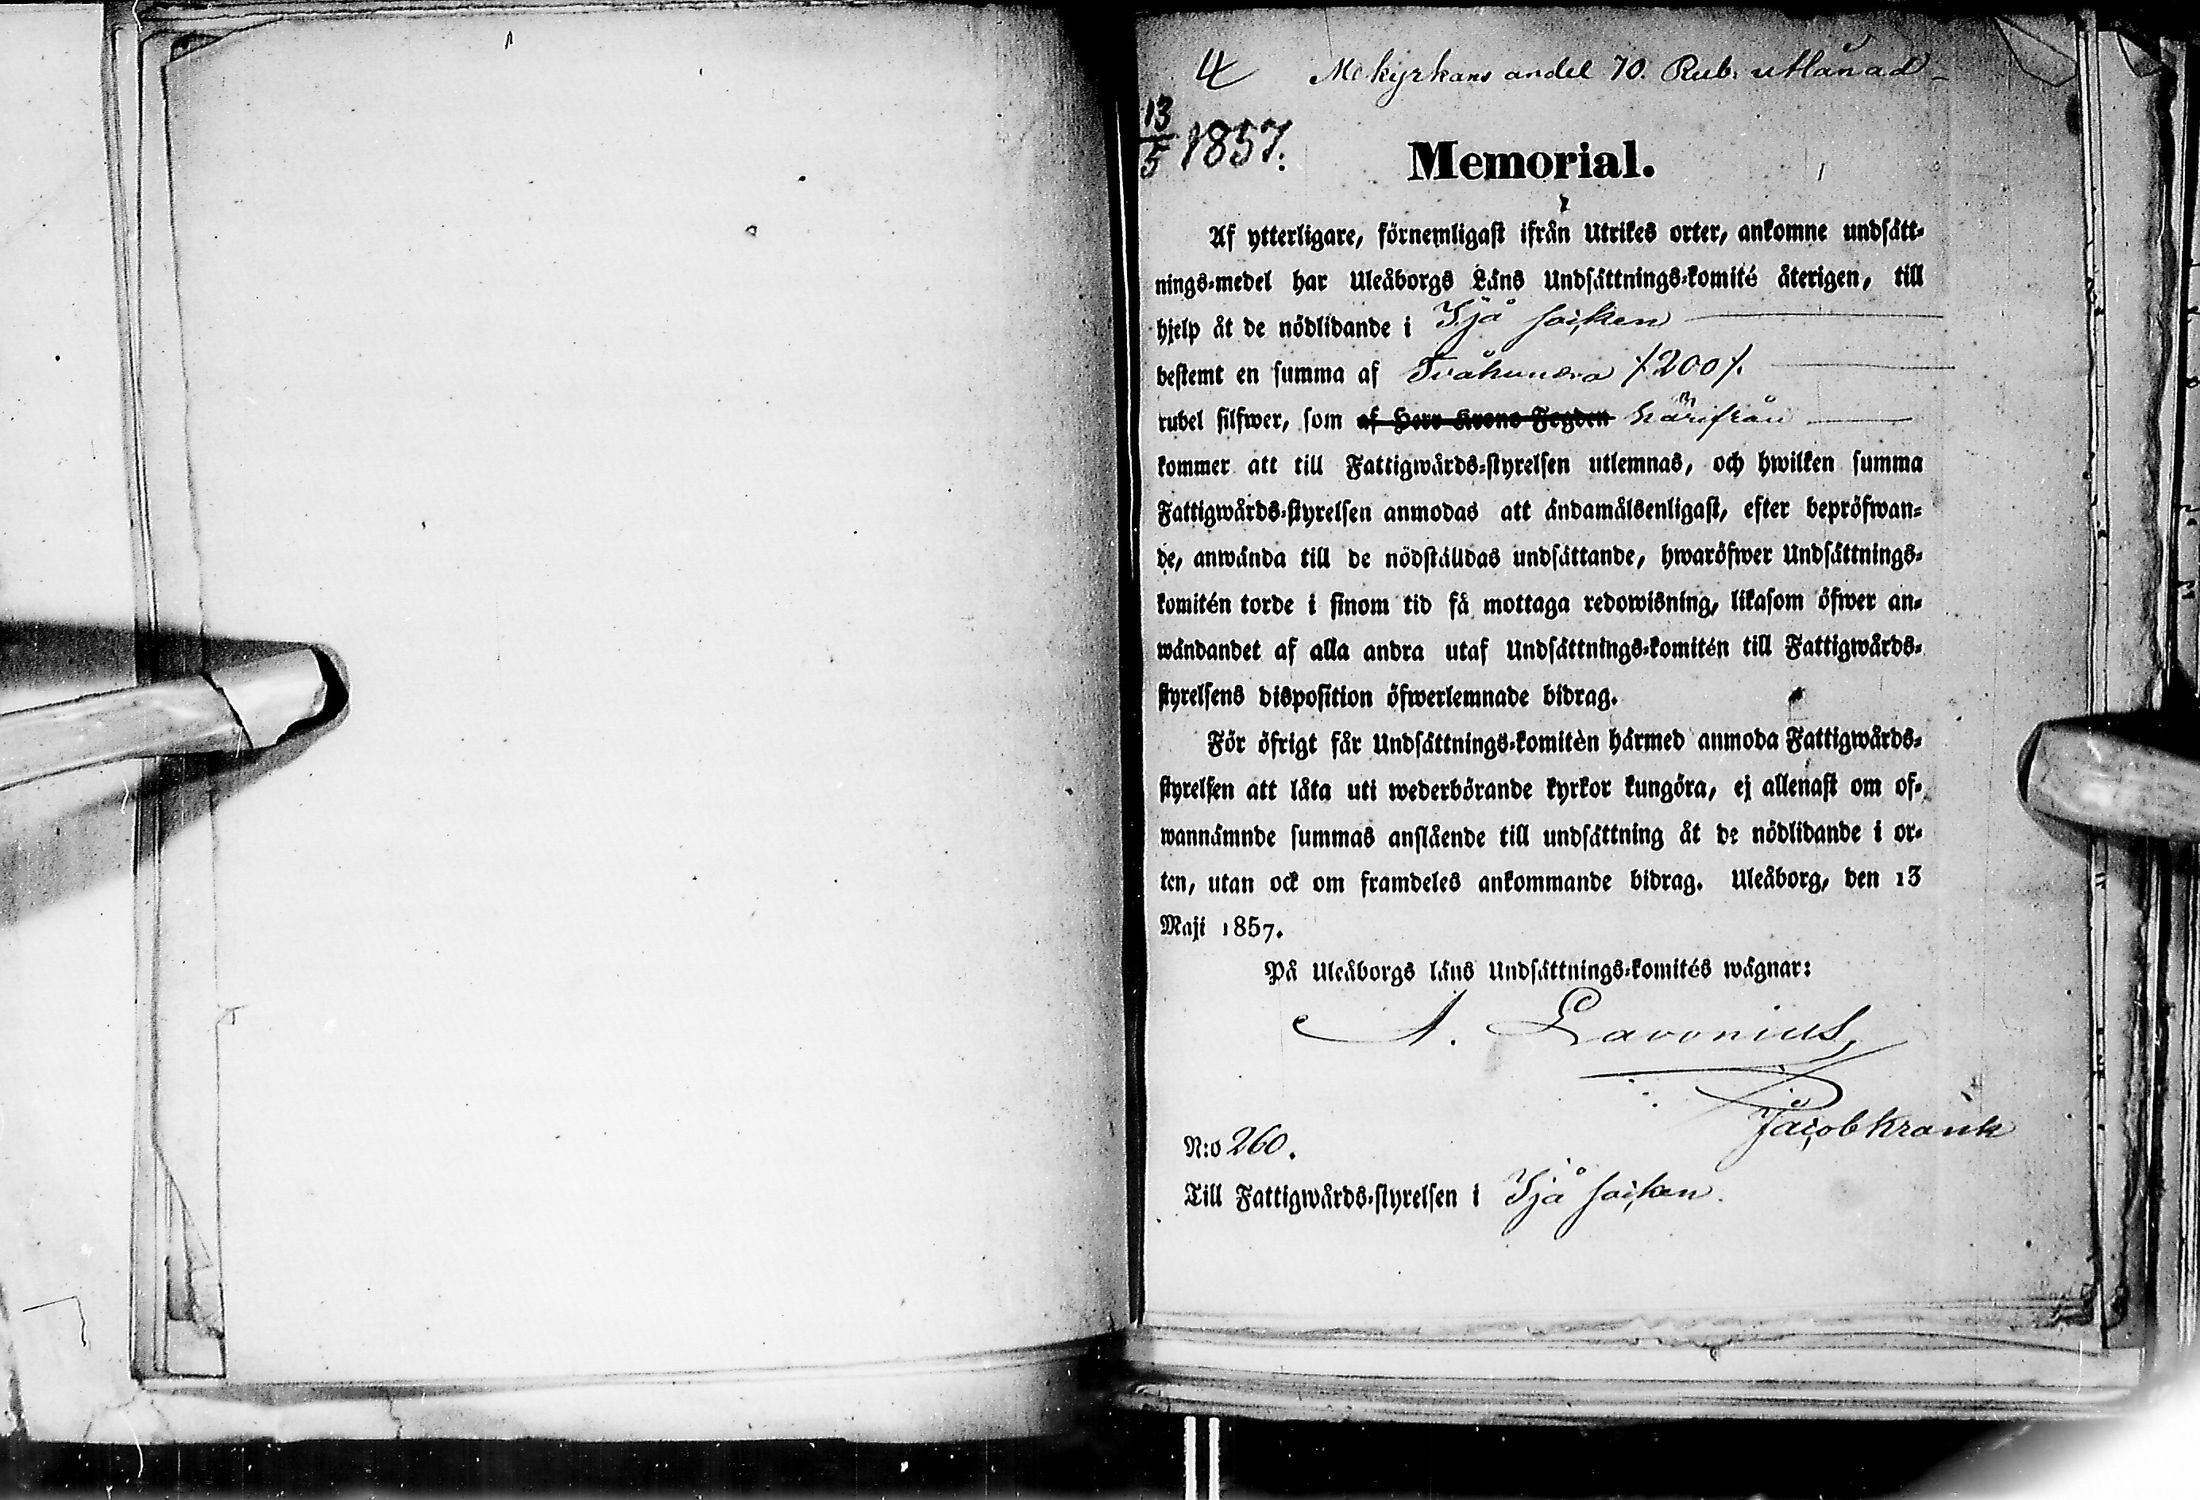 4 Mkyrkans andel 70. Rub. utlånad
13/5 1857.
Memorial.
Af ytterligare, förnemligast ifrån Utrikes orter, ankomne undsätt-
nings-medel har Uleåborgs Läns Undsättnings-komité återigen, till
hjelp åt de nödlidande i Ijå socken
bestemt en summa af Tvåhundra /200/.
rubel silfwer, som af Herr Krono Fogden härifrån
kommer att till Fattigwårds-styrelsen utlemnas, och hwilken summa
Fattigwårds-styrelsen anmodas att ändamålsenligast, efter bepröfwan-
de, anwända till de nödställdas undsättande, hwaröfwer Undsättnings-
komitén torde i sinom tid få mottaga redowisning, likasom öfwer an-
wändandet af alla andra utaf Undsättnings-komitén till Fattigwårds-
styrelsens disposition öfwerlemnade bidrag.
För öfrigt får Undsättnings-komitèn härmed anmoda Fattigwårds-
styrelsen att låta uti wederbörande kyrkor kungöra, ej allenast om of-
wannämnde summas anslående till undsättning åt de nödlidande i or-
ten, utan ock om framdeles ankommande bidrag. Uleåborg, den 13
Maji 1857.
På Uleåborgs läns Undsättnings-komités wägnar:
A. Lavonius,
Jacob Krank
N:o 260.
Till Fattigwårds-styrelsen i Ijå socken.